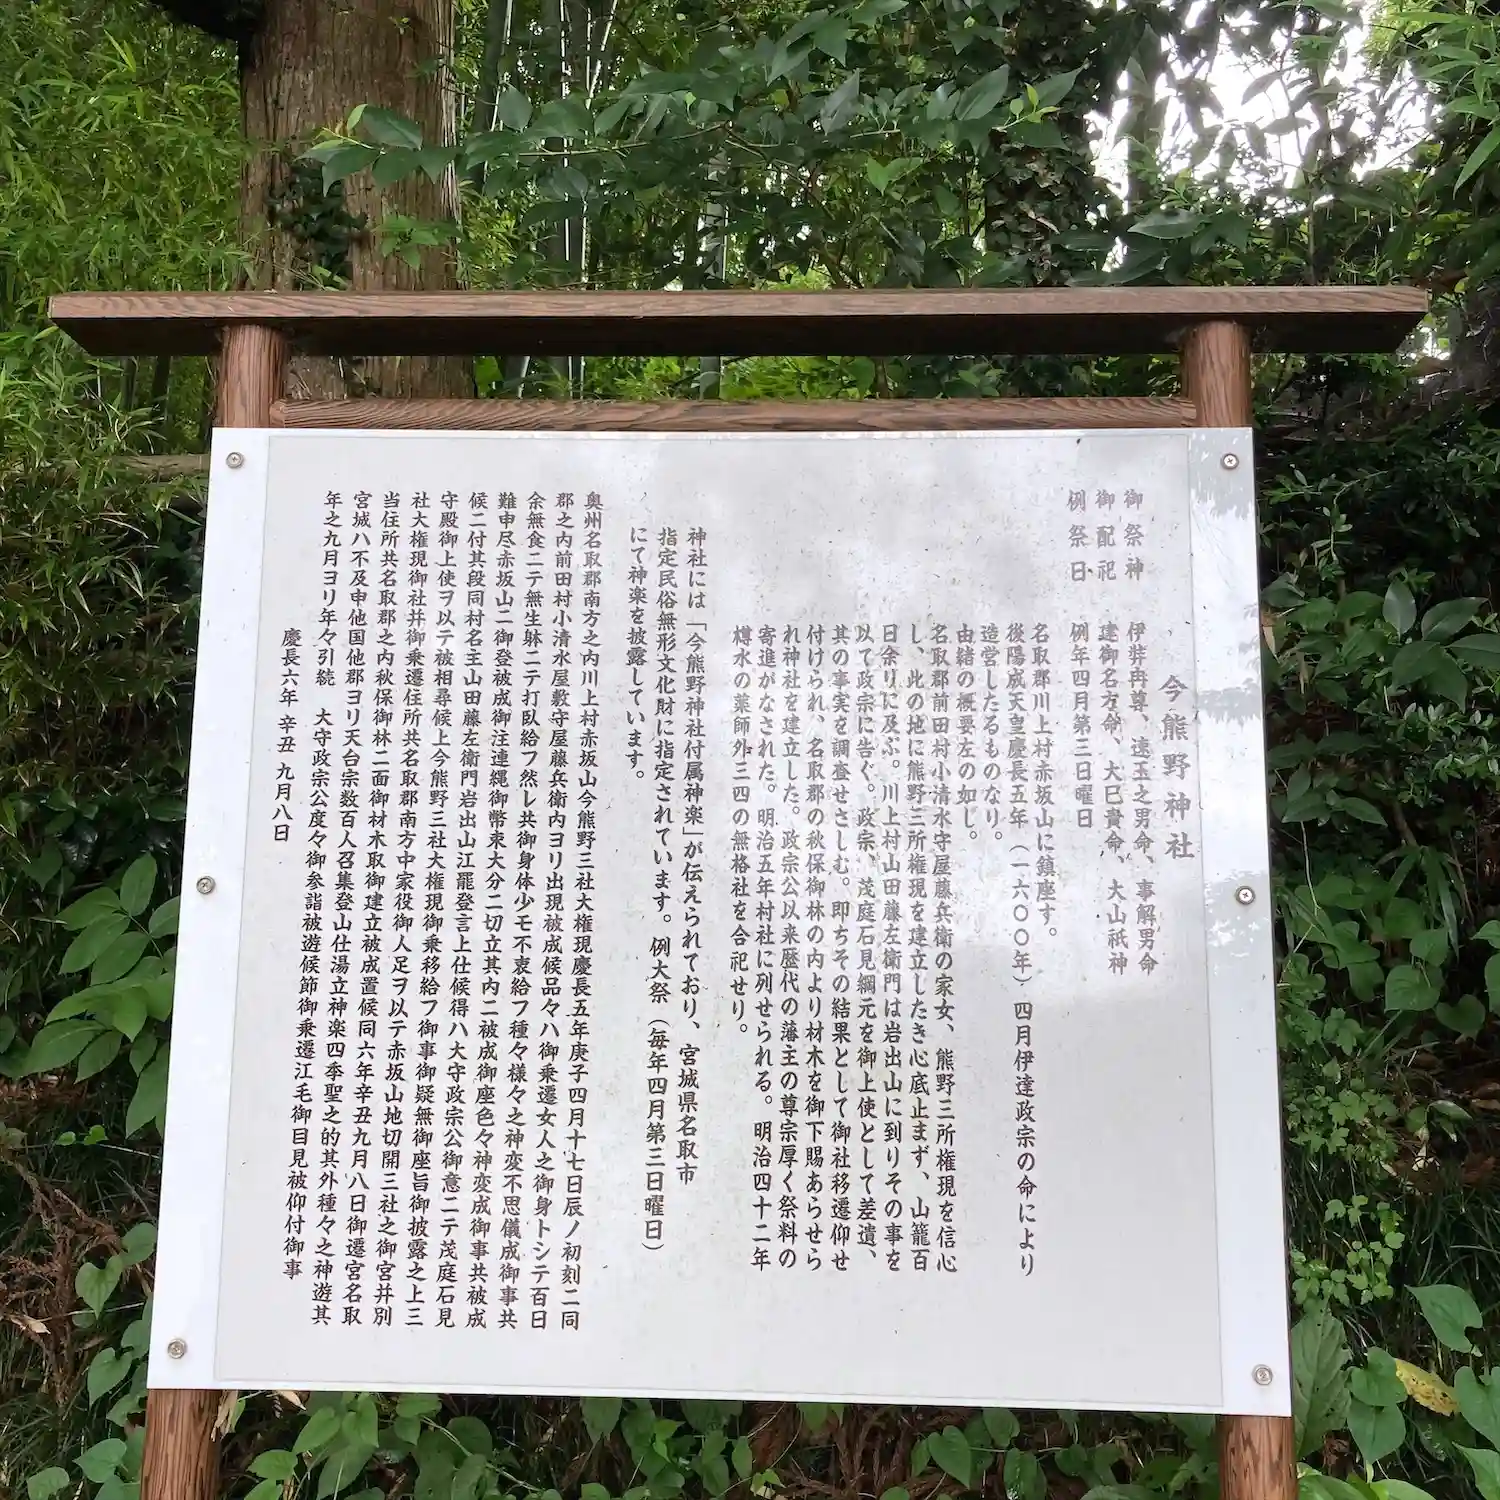 今熊野神社
御祭神　伊弉冉尊、速玉之男命、事解男命
御配祀　建御名方命、大巳貴命、大山祇神
例祭日　例年四月第三日曜日
名取郡川上村赤坂山に鎮座す。
後陽成天皇慶長五年（一六〇〇年）四月伊達政宗の命により
造営したるものなり。
由緒の概要左の如し。
名取郡前田村小清水守屋藤兵衛の家女、熊野三所権現を信心
し、此の地に熊野三所権現を建立したき心底止まず、山籠百
日余りに及ぶ。川上村山田藤左衛門は岩出山に到りその事を
以て政宗に告ぐ。政宗、茂庭石見綱元を御上使として差遣、
其の事実を調査せさしむ。即ちその結果として御社移遷仰せ
付けられ、名取郡の秋保御林の内より材木を御下賜あらせら
れ神社を建立した。政宗公以来歴代の藩主の尊宗厚く祭料の
寄進がなされた。明治五年村社に列せられる。明治四十二年
樽水の薬師外三四の無格社を合祀せり。
神社には「今熊野神社付属神楽」が伝えられており、宮城県名取市
指定民俗無形文化財に指定されています。例大祭（毎年四月第三日曜日）
にて神楽を披露しています。
奥州名取郡南方之内川上村赤坂山今熊野三社大権現慶長五年庚子四月十七日辰ノ初刻二同
郡之内前田村小清水屋敷守屋藤兵衛内ヨリ出現被成候品々ハ御乗遷女人之御身トシテ百日
余無食二テ無生躰二テ打臥給フ然レ共御身体少モ不衰給フ種々様々之神変不思儀成御事共
難申尽赤坂山二御登被成御注連縄御幣束大分二切立其内二被成御座色々神変成御事共被成
候二付其段同村名主山田藤左衛門岩出山江罷登言上仕候得ハ大守政宗公御意二テ茂庭石見
守殿御上使ヲ以テ被相尋候上今熊野三社大権現御乗移給フ御事御疑無御座旨御披露之上三
社大権現御社并御乗遷住所共名取郡南方中家役御人足ヲ以テ赤坂山地切開三社之御宮并別
当住所共名取郡之内秋保御林二面御材木取御建立被成置候同六年辛丑九月八日御遷宮名取
宮城ハ不及申他国他郡ヨリ天台宗数百人召集登山仕湯立神楽四季聖之的其外種々之神遊其
年之九月ヨリ年々引続　大守政宗公度々御参詣被遊候節御乗遷江毛御目見被仰付御事
慶長六年 辛丑 九月八日